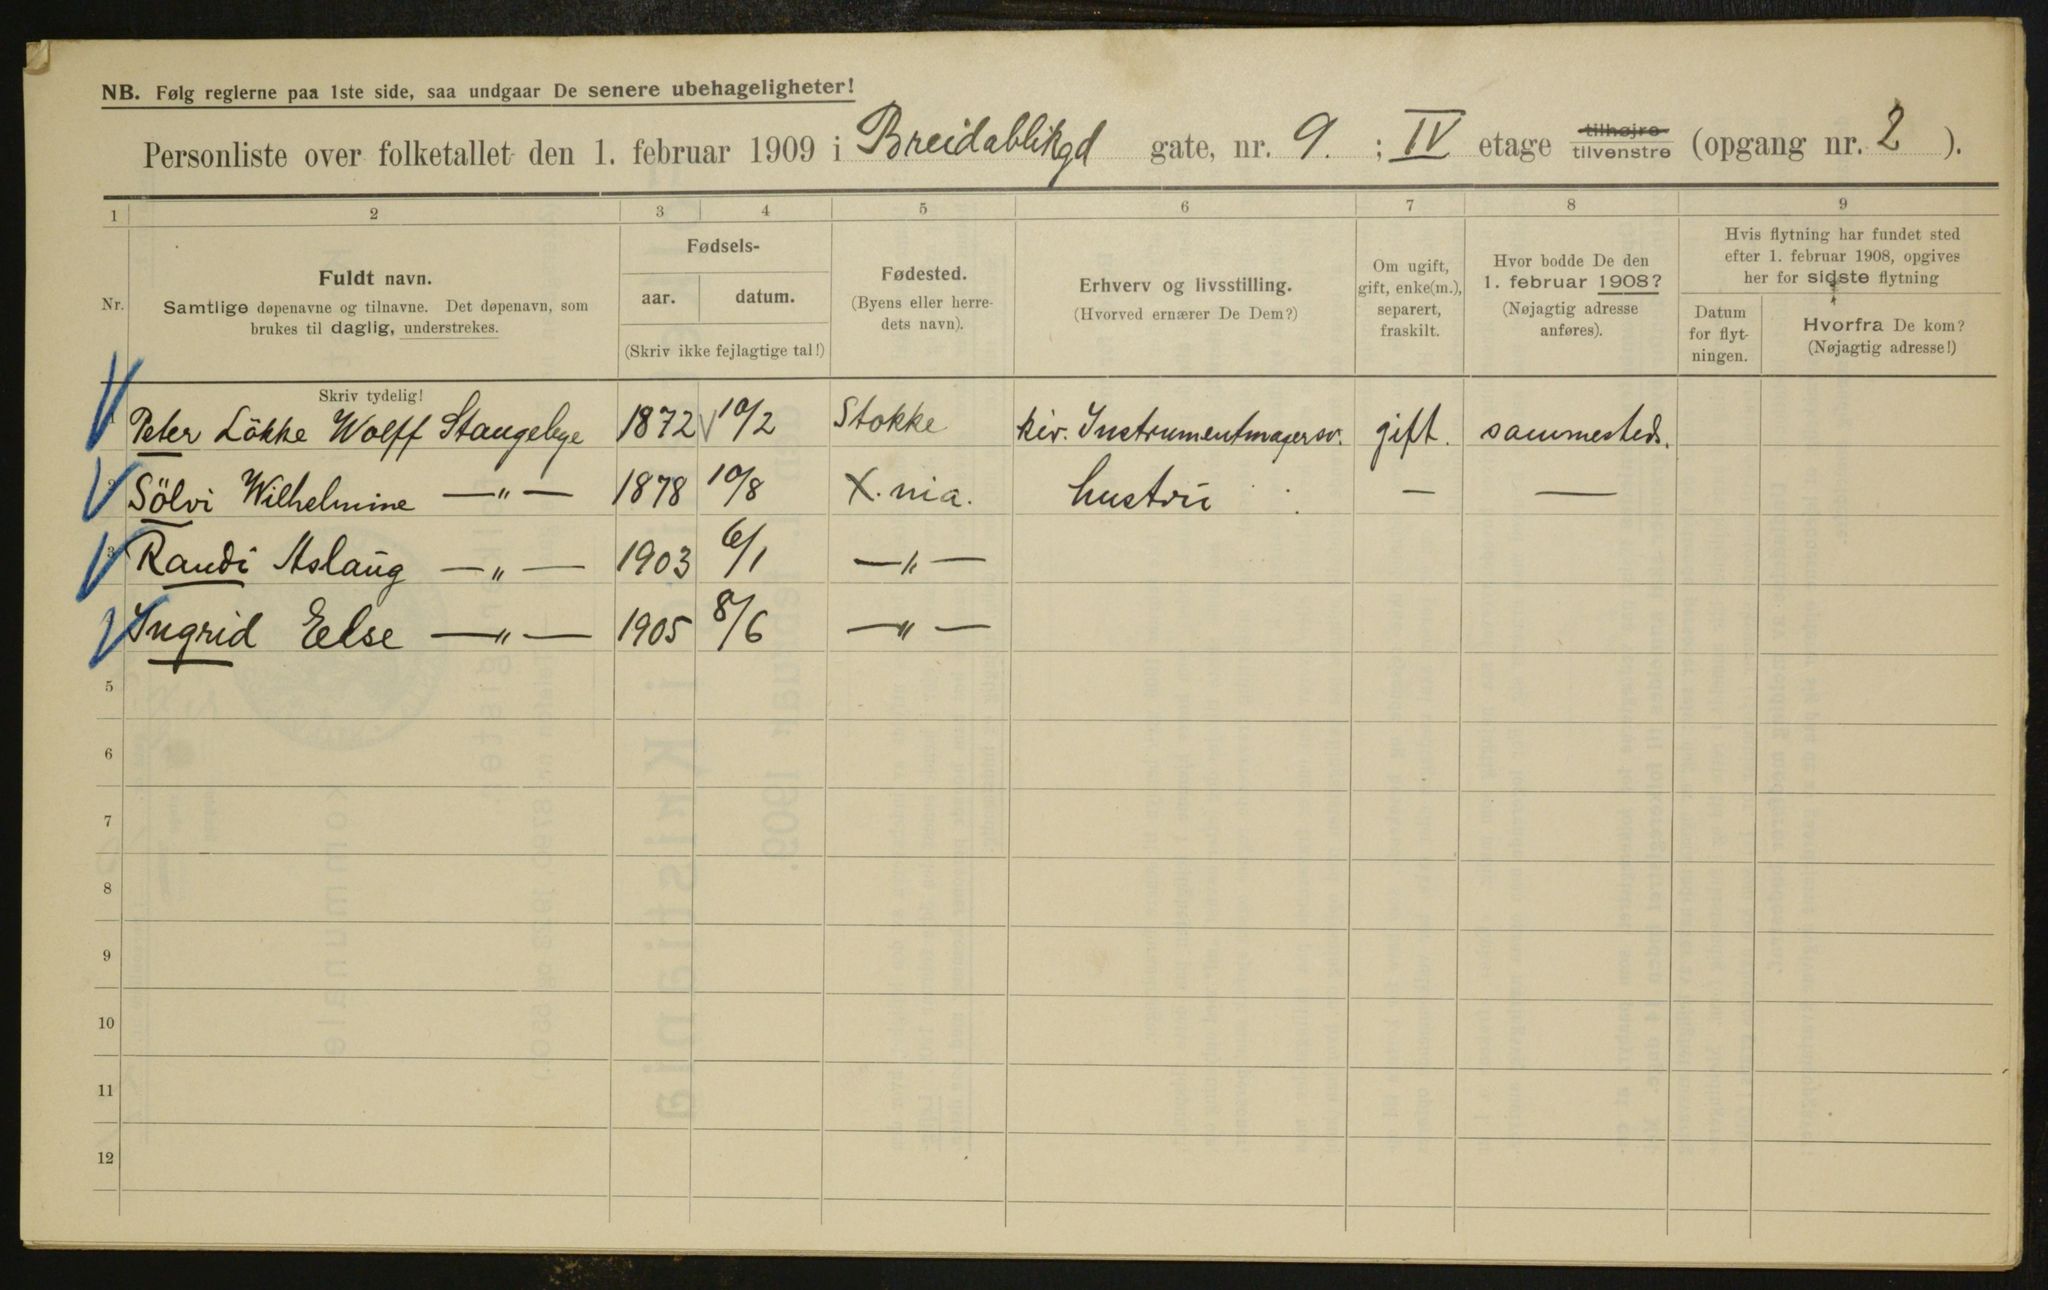 NB. Følg reglerne paa 1ste side, saa undgaar De senere ubehageligheter!
Personliste over folketallet den 1. februar 1909 i Breidablikgd gate, nr. 9. ; IV etage tilhøjre tilvenstre (opgang nr. 2 ).
1 2 3 4 5 6 7 8 9
Nr.
Fuldt navn.
Samtlige døpenavne og tilnavne. Det døpenavn, som
brukes til daglig, understrekes.
Skriv tydelig!
Fødsels-
aar. datum.
(Skriv ikke fejlagtige tal!)
Fødested.
(Byens eller herre-
dets navn).
Erhverv og livsstilling.
(Hvorved ernærer De Dem?)
Om ugift,
gift, enke(m.),
separert,
fraskilt.
Hvor bodde De den
1. februar 1908?
(Nøjagtig adresse
anføres).
Hvis flytning har fundet sted
efter 1. februar 1908, opgives
her for sidste flytning
Datum
for flyt-
ningen.
Hvorfra De kom?
(Nøjagtig adresse!)
1 Peter Lökke Wolff Stangebye 1872 10/2 Stokke kir. Instrumentmagersv. gift. sammesteds.
2 Sölvi Wilhelmine —"— 1878 10/8 X.nia. hustru — —
3 Randi Aslaug —"— 1903 6/1 —"—
Ingrid Else —"— 1905 8/6 —"—
5
6
7
8
9
10
11
12